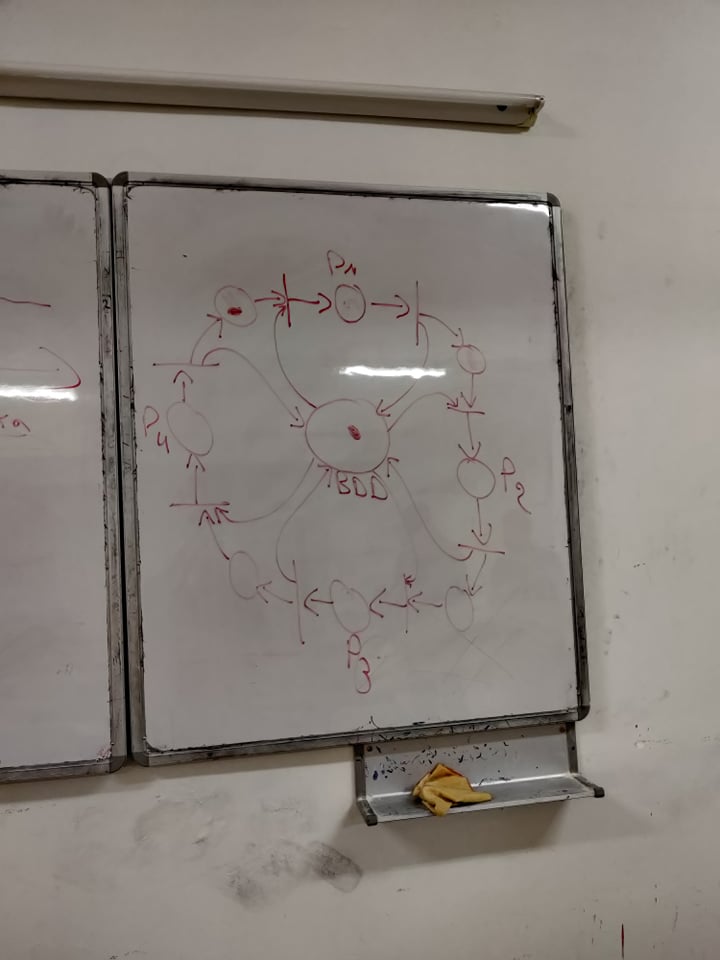 P1
P4
BDD
P2
P3